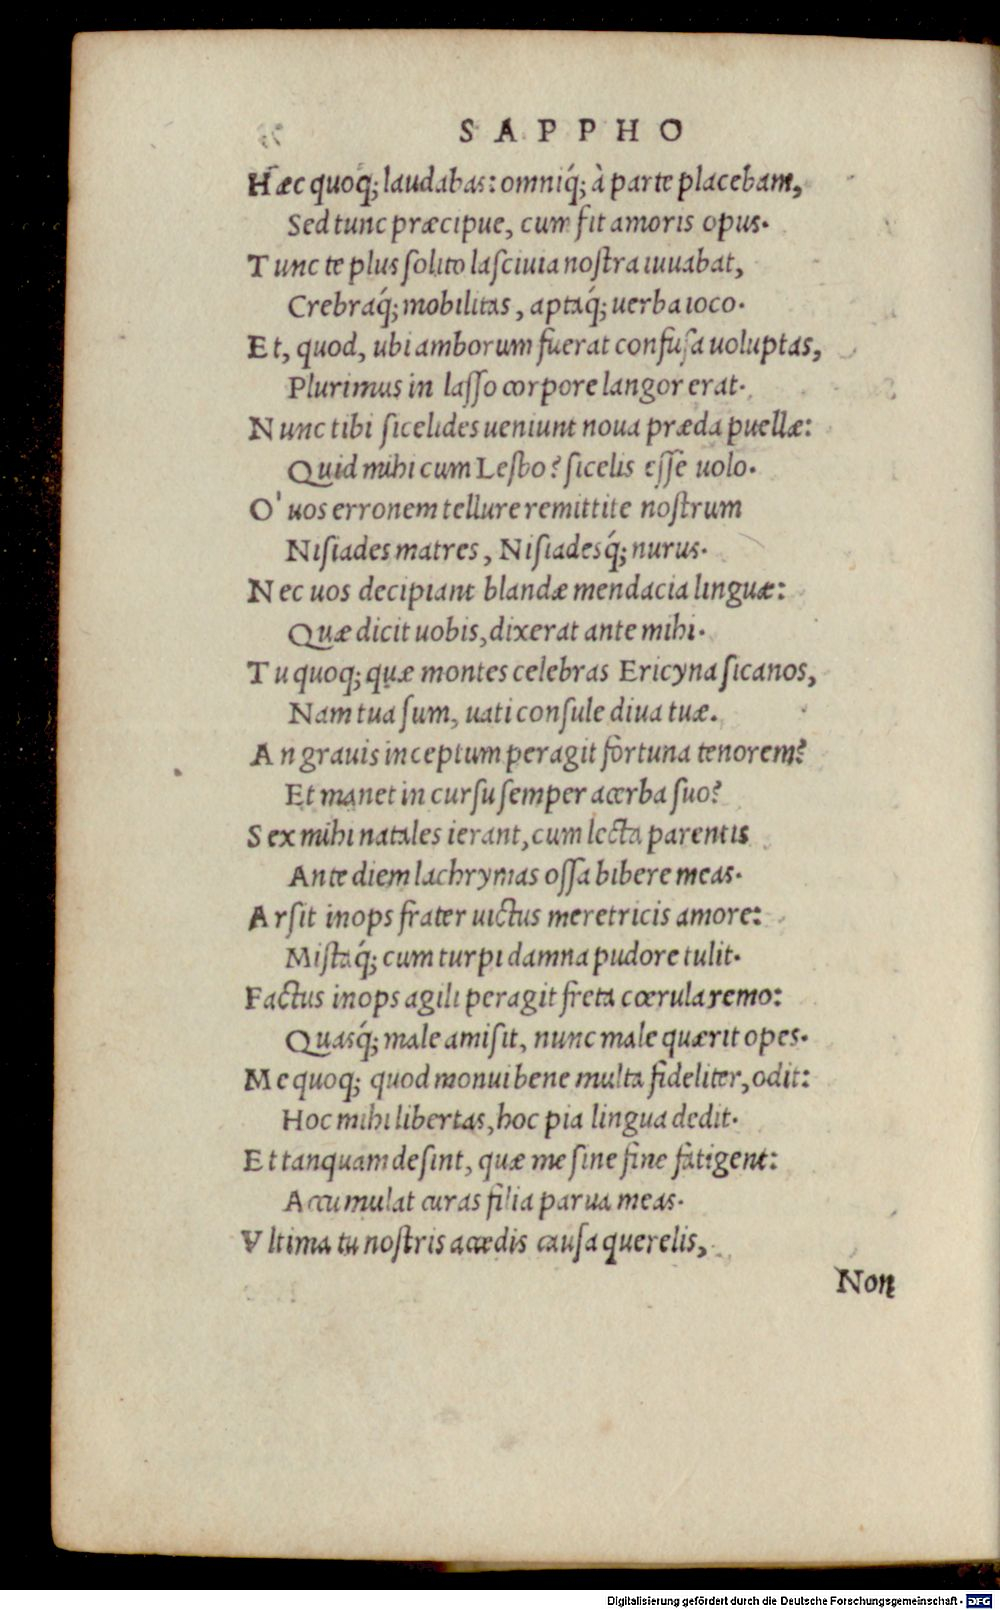 SAPPHO
Hæc quoq́; laudabas: omniq́; à parte placebam,
Sed tunc præcipue, cum fit amoris opus.
Tunc te plus solito lasciuia nostra iuuabat,
Crebraq́; mobilitas, aptaq́; uerba ioco.
Et, quod, ubi amborum fuerat confusa uoluptas,
Plurimus in lasso corpore langor erat.
Nunc tibi sicelides ueniunt noua præda puellæ:
Quid mihi cum Lesbo? sicelis esse uolo.
O' uos erronem tellure remittite nostrum
Nisiades matres, Nisiadesq́; nurus.
Nec uos decipiant blandæ mendacia linguæ:
Quæ dicit uobis, dixerat ante mihi.
Tu quoq; quæ montes celebras Erycina sicanos,
Nam tua sum, uati consule diua tuæ.
An grauis inceptum peragit fortuna tenorem?
Et manet in cursu semper acerba suo?
Sex mihi natales ierant, cum lecta parentis
Ante diem lachrymas ossa bibere meas.
Arsit inops frater uictus meretricis amore:
Mistaq́; cum turpi damna pudore tulit.
Factus inops agili peragit freta cœrula remo:
Quasq́; male amisit, nunc male quærit opes.
Me quoq; quod monui bene multa fideliter, odit:
Hoc mihi libertas, hoc pia lingua dedit.
Et tanquam desint, quæ me sine fine fatigent:
Accumulat curas filia parua meas.
Vltima tu nostris accedis causa querelis,
Non
Digitalisierung gefördert durch die Deutsche Forschungsgemeinschaft - DFG